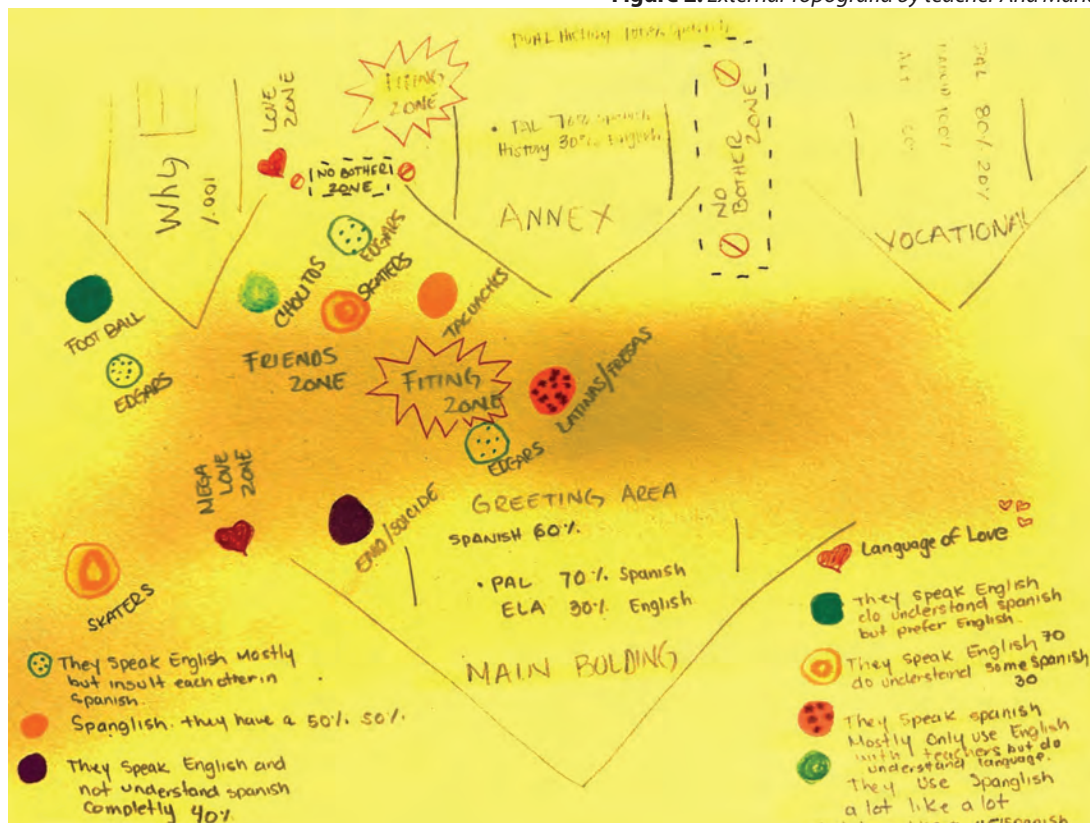 Figure 2. External Topografía by teacher Ana
DUAL HISTORY 100% Spanish
FITING
ZONE
LOVE
ZONE
Why
100%
NO BOTHER
ZONE
• PAL 70% Spanish
History 30% English
ANNEX
NO
BOTHER
ZONE
PAL 80% 20%
VOCATIONAL
FOOT BALL
EDGARS
CHOLITOS
EDGARS
SKATERS
TACUACHES
FRIENDS
ZONE
FITING
ZONE
LATINAS/FRESAS
EDGARS
MEGA
LOVE
ZONE
EMO/SUICIDE
SKATERS
GREETING AREA
SPANISH 60%
• PAL 70% Spanish
ELA 30% English
MAIN BOLDING
They Speak English Mostly
but insult each otter in
Spanish.
Spanglish. they have a 50% 50%
They Speak English and
not understand spanish
completly 40%
Language of Love
They Speak English
do understand spanish
but prefer English.
They Speak English 70
do understand some spanish
30
They Speak spanish
Mostly Only use English
with teachers but do
understand language.
They Use Spanglish
a lot like a lot